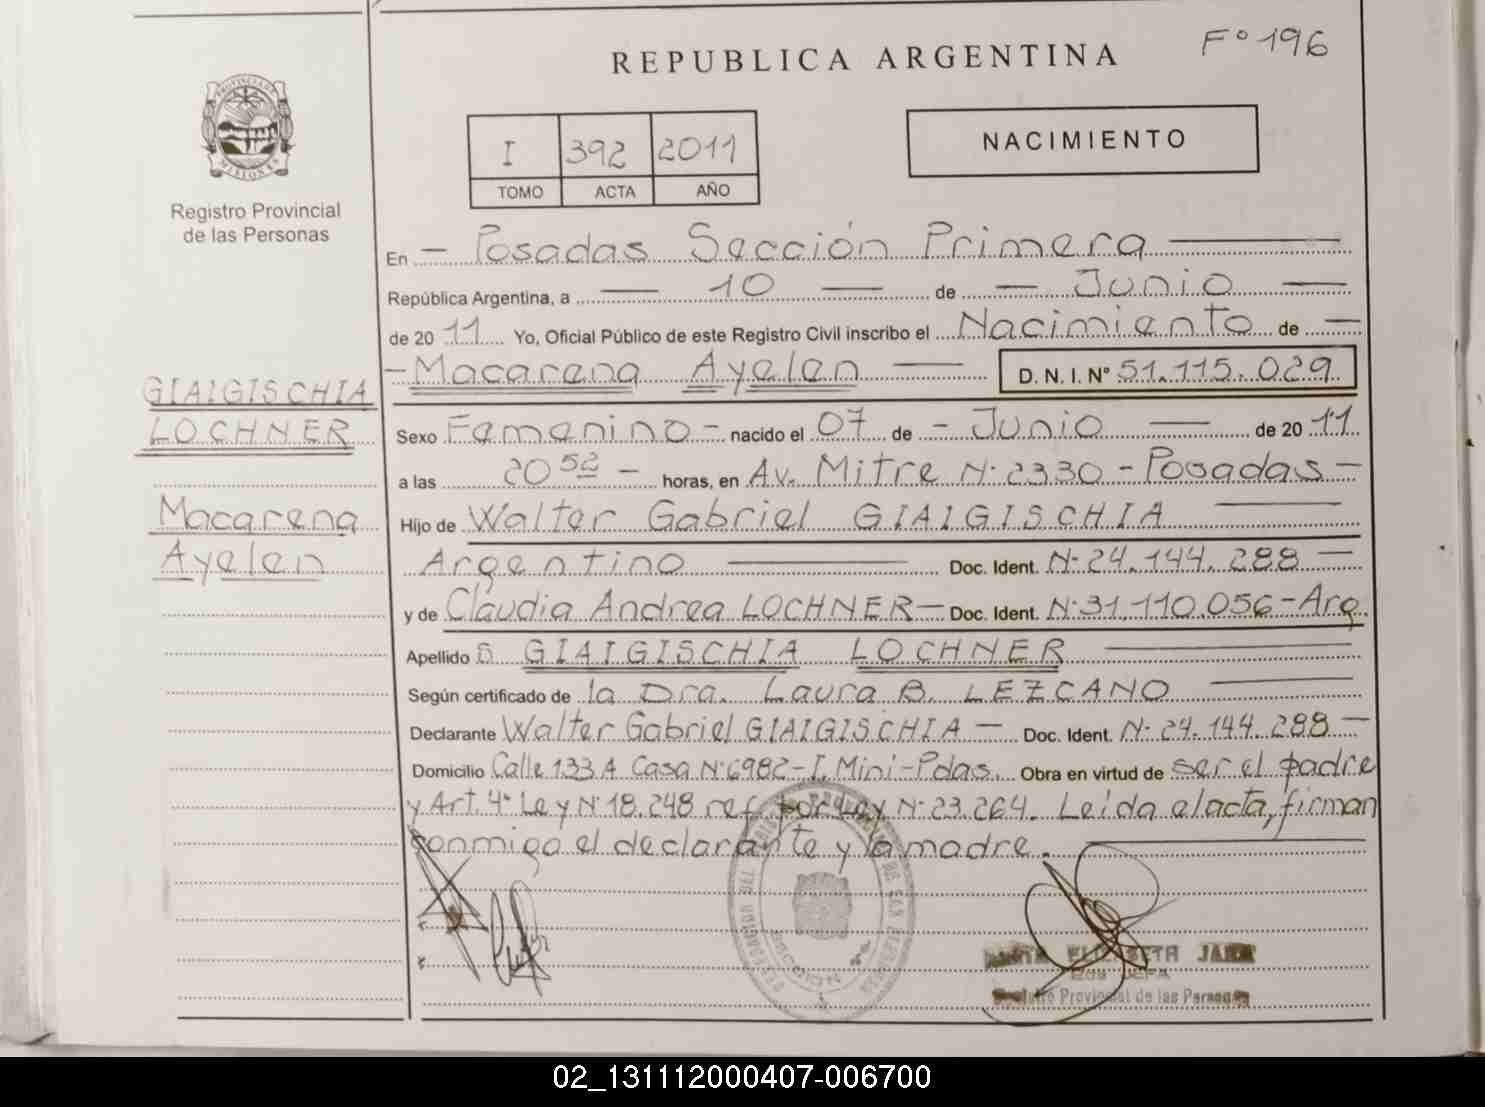 F° 196
REPUBLICA ARGENTINA
PROVINCIA DE
MISIONES
Registro Provincial
de las Personas
I 392 2011
TOMO ACTA AÑO
NACIMIENTO
En - Posadas Sección Primera
República Argentina, a 10 de - Junio
de 2011 Yo, Oficial Público de este Registro Civil inscribo el Nacimiento de -
- Macarena Ayelen D. N. I. N° 51.115.029
GIAIGISCHIA
LOCHNER
Macarena
Ayelen
Sexo Femenino - nacido el 07 de - Junio de 2011
a las 20 52 - horas, en Av. Mitre N° 2330 - Posadas -
Hijo de Walter Gabriel GIAIGISCHIA
Argentino Doc. Ident. N° 24.144.288 -
y de Claudia Andrea LOCHNER - Doc. Ident. N° 31.110.056 - Arg.
Apellido S GIAIGISCHIA LOCHNER
Según certificado de la Dra. Laura B. LEZCANO
Declarante Walter Gabriel GIAIGISCHIA - Doc. Ident. N° 24.144.288 -
Domicilio Calle 133 A Casa N° 6982 - I. Mini - Pdas. Obra en virtud de ser el padre
y Art. 4° Ley N° 18.248 ref. por Ley N° 23.264. Leida el acta, firman
conmigo el declarante y la madre.
SECCION 1ª
ELIZABETH JARA
JEFA
Registro Provincial de las Personas
02_131112000407-006700